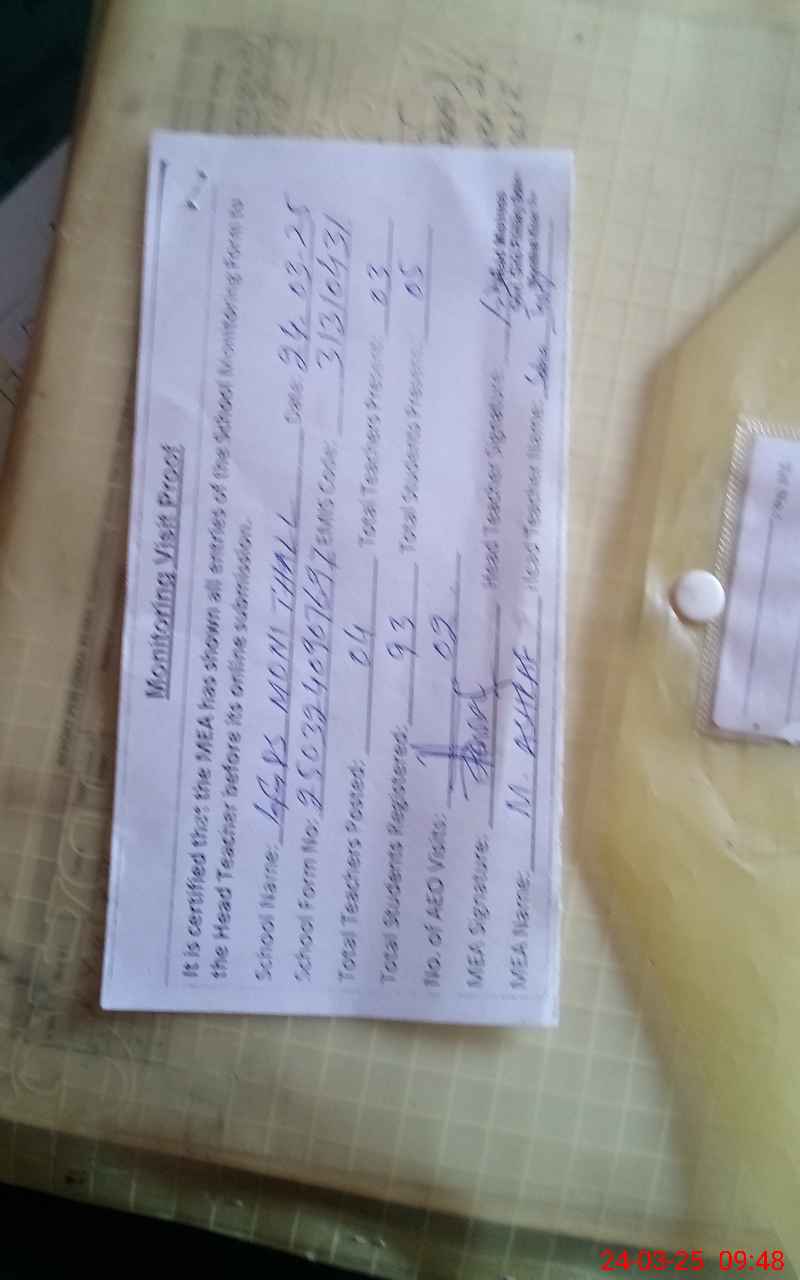 Monitoring Visit Proof
It is certified that the MEA has shown all entries of the School Monitoring Form to
the Head Teacher before its online submission.
School Name: GGPS MONI THALL Date: 24-03-25
School Form No: EMIS Code: 31310431
Total Teachers Posted: 04 Total Teachers Present: 03
Total Students Registered: 93 Total Students Present: 05
No. of AEO Visits: 02
MEA Signature: Head Teacher Signature:
MEA Name: M. ASHRAF Head Teacher Name:
24-03-25 09:48